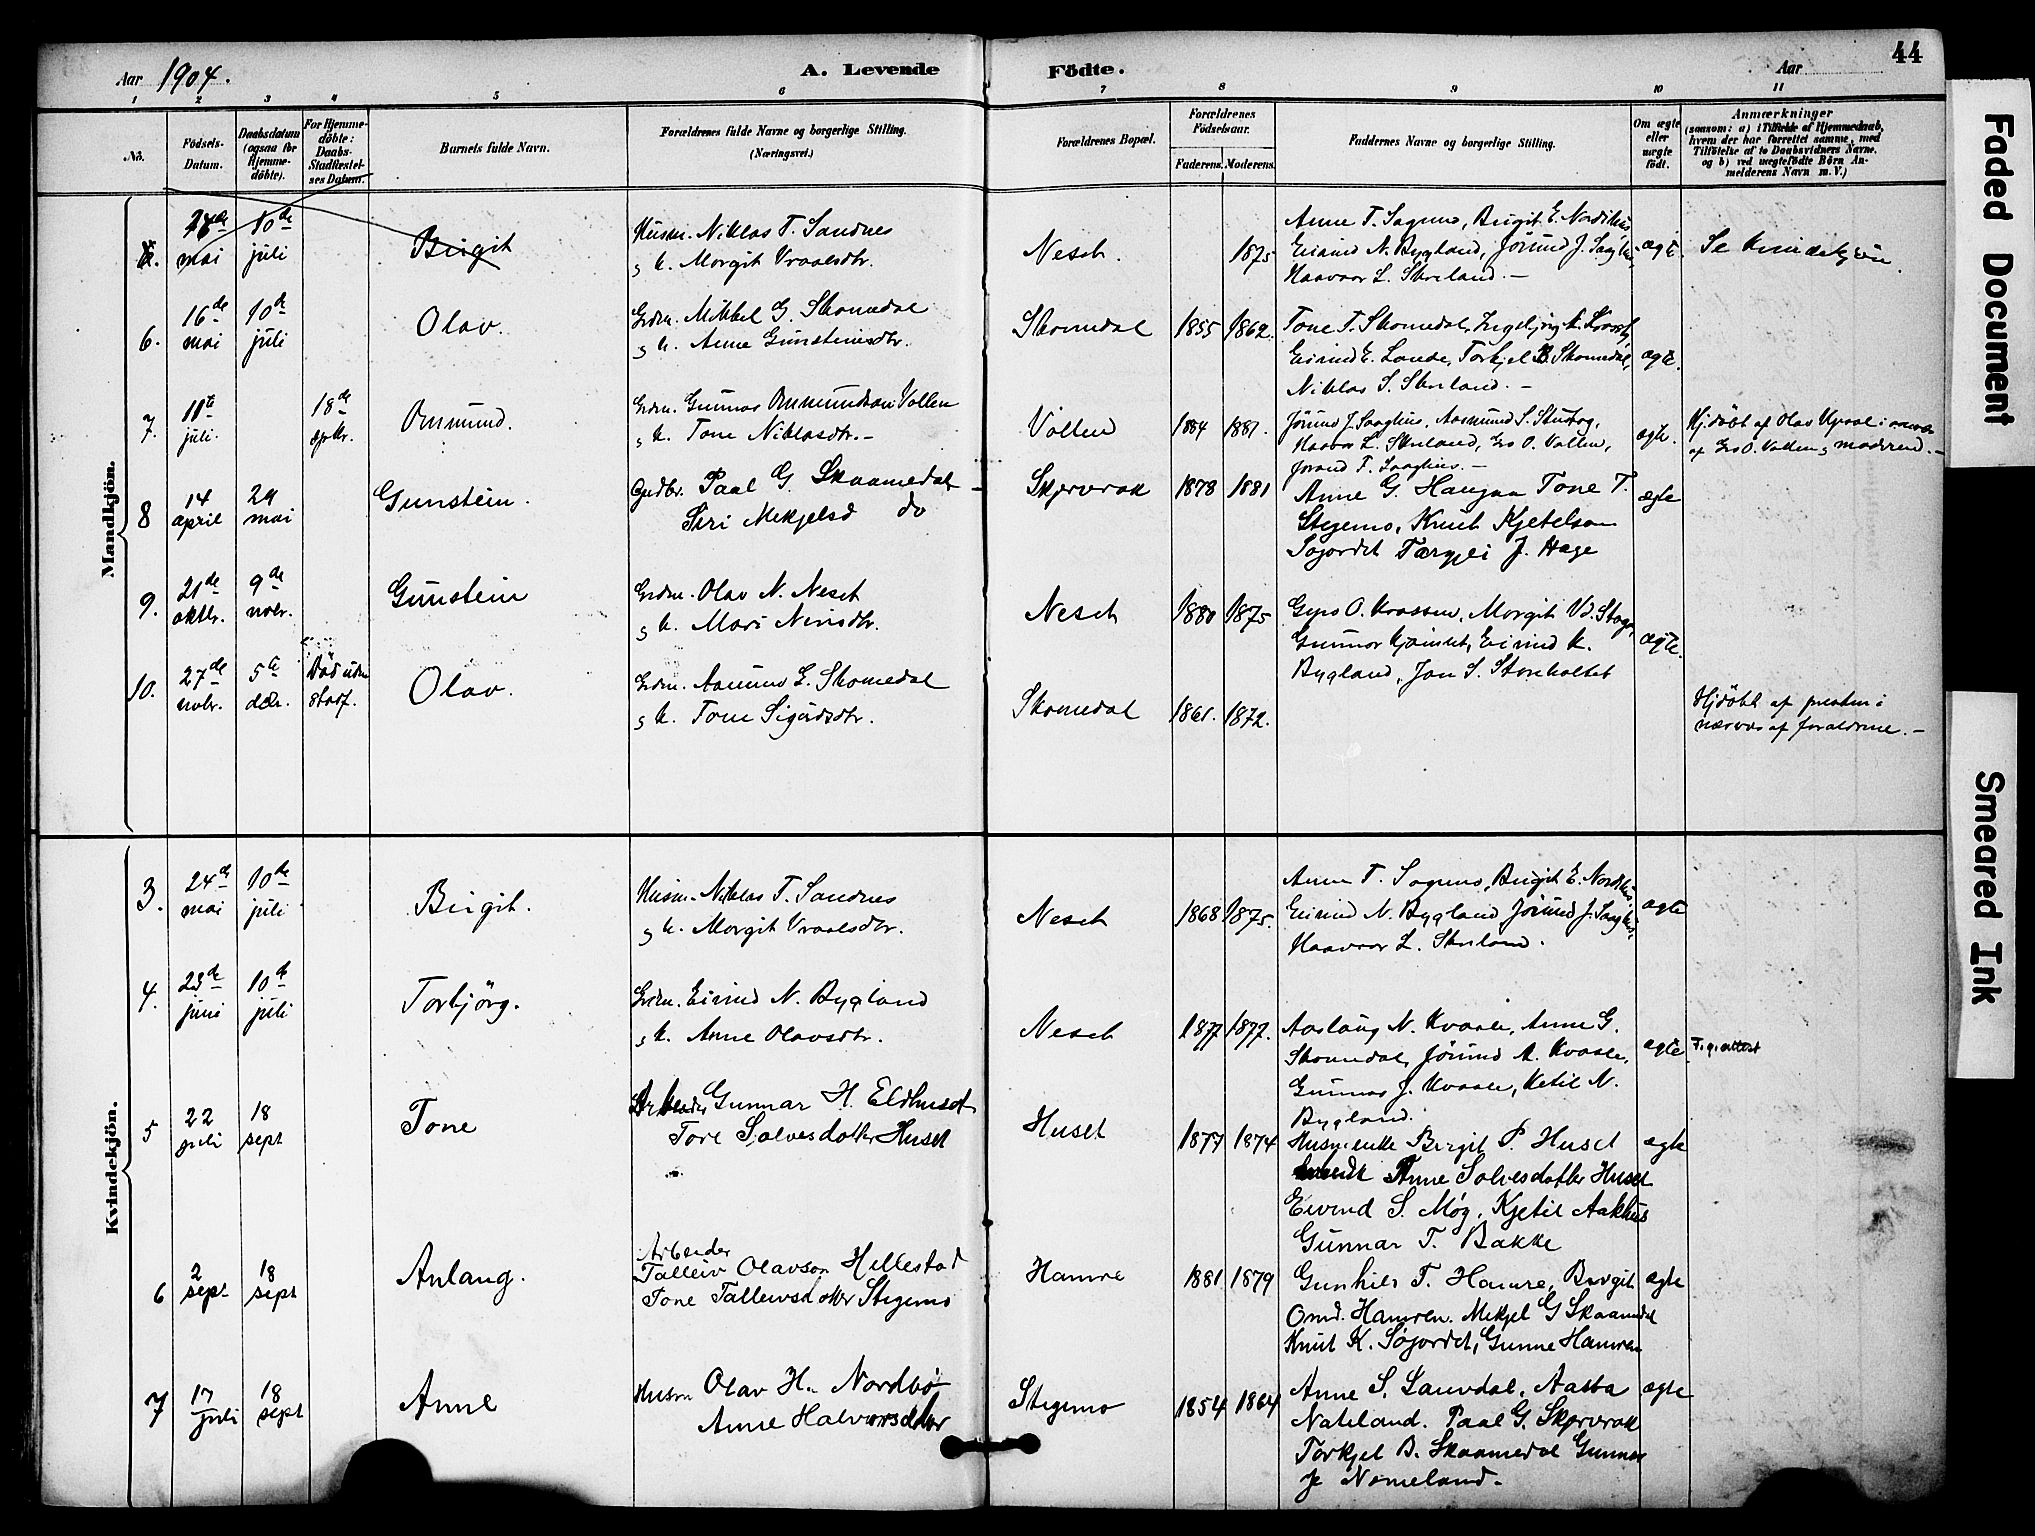 Aar 1904.
A. Levende Födte.
Aar
44
1 2 3 4 5 6 7 8 9 10 11
No.
Födsels-Datum.
Daabsdatum (ogsaa for Hjemmedöbte).
For Hjemmedöbte: Daabs-Stadfestelses Datum.
Barnets fulde Navn.
Forældrenes fulde Navne og borgerlige Stilling. (Næringsvei.)
Forældrenes Bopæl.
Forældrenes Födselsaar.
Faderens. Moderens.
Faddernes Navne og borgerlige Stilling.
Om ægte eller uægte födt.
Anmærkninger (saasom: a) i Tilfælde af Hjemmedaab, hvem der har forrettet samme, med Tilföielse af to Daabsvidners Navne, og b) ved uægtefödte Börn Anmelderens Navn m. V.)
Mandkjön.
mai
10de juli
Birgit
Husm. Niklas T. Sandnes
g h. Morgit Vraalsdtr.
Neset.
1875
Anne T. Sagmo, Birgit E. Nordhus,
Eivind N. Bygland, Jörund J. Saaghus,
Haavor L. Skreland. -
ægte.
Se kvindekjön.
6.
16de mai
10de juli
Olav.
Grdm. Mikkel G. Skomedal
g h. Anne Gunsteinsdtr.
Skomedal
1855 1862.
Tone T. Skomedal,
Eivind E. Lande, Torkjel B. Skomedal,
Niklas S. Skreland. -
ægte.
7.
11te juli.
18de
Ommund.
Grdm. Gunnar Ommundson Vollen
g h. Tone Niklasdtr. -
Vollen
1884 1881.
Jörund J. Saaghus, Aasmund S.
Haavor L. Skreland, O. Vollen,
T. Saaghus. -
ægte.
Hjdöbt af Olav Uppal i
af O. Vollen g moderen. -
8
14 april
24 mai
Gunstein.
Grdbr. Paal G. Skaamedal -
Siri Mekjelsd do
Skjervrak
1878 1881
Anne G. Haugaa Tone T.
Stegemo, Knut Kjetelson
Sogordet Targjei J. Hage
ægte
9.
21de oktbr.
9de novbr.
Gunstein
Grdm. Olav N. Neset
g h. Mari Nirisdtr.
Neset
1880 1875
Gyro O. Kvassen, Morgit
Gunnar Eivind K.
Bygland, Jon S. Storeholtet
ægte.
10.
27de novbr.
5te
Död uden stadf.
Olav.
Grdm. Aanund E. Skomedal
g h. Tone Sigurdsdtr.
Skomedal
1861. 1872.
Hjdöbt af presten i
nærvær af forældrene. -
Kvindekjön.
3.
24de mai
10de juli
Birgit.
Husm. Niklas T. Sandnes
g h. Morgit Vraalsdtr.
Neset
1868 1875.
Anne T. Sagmo, Birgit E. Nordhus,
Eivind N. Bygland Jörund J. Saaghus,
Haavor L. Skreland.
ægte
4.
23de juni
10de juli
Torbjörg.
Grdm. Eivind N. Bygland
g h. Anne Olavsdtr.
Neset
1877 1877.
Aaslaug N. Kvaale, Anne G.
Skomedal, Jörund A. Kvaale,
Gunnar J. Kvaale, Ketil N.
Bygland.
ægte
F. g. attest
5
22 juli
18 sept
Tone
Arbeider Gunnar H. Eldhuset
Tore Salvesdatter Huset
Huset
1877 1874
Husm enke Birgit P. Huset
Anne Salvesdatter Huset
Eivind S. Møg, Kjetil Aakhus
Gunnar T. Bakke
ægte
6
2 sept
18 sept
Anlaug.
Arbeider
Talleiv Olavson Hillestad
Tone Talleivsdatter Stegemo
Hamre
1881 1879
Gunhild T. Hamre, Birgit
Omd. Hamren. Mekjel G Skaamedal
Knut K. Søjordet, Gunne Hamren
ægte
7
17 juli
18 sept
Anne
Husm Olav H. Nordbø
Anne Halvorsdatter
Stegemo
1854 1864
Anne S. Lauvdal, Aasba
Nateland. Paal G. Skjervrak
Torkjel B. Skaamedal Gunnar
J. Nomeland.
ægte
Faded Document
Smeared Ink